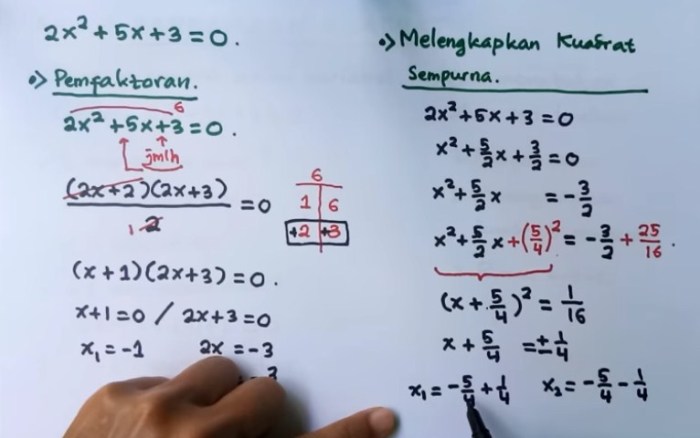 2x² + 5x + 3 = 0.
•> Pemfaktoran.
6
2x² + 5x + 3 = 0.
jmlh
(2x+2)(2x+3)/2 = 0
1
6
1 | 6
+2 | +3
(x+1)(2x+3) = 0.
x+1=0 / 2x+3=0
x₁ = -1 2x = -3
3
•> Melengkapkan Kuadrat
Sempurna.
2x² + 5x + 3 = 0
x² + 5/2 x + 3/2 = 0
x² + 5/2 x = -3/2
x² + 5/2 x + (5/4)² = -3/2 + 25/16.
(x + 5/4)² = 1/16
x + 5/4 = ± 1/4
x₁ = -5/4 + 1/4 x₂ = -5/4 - 1/4